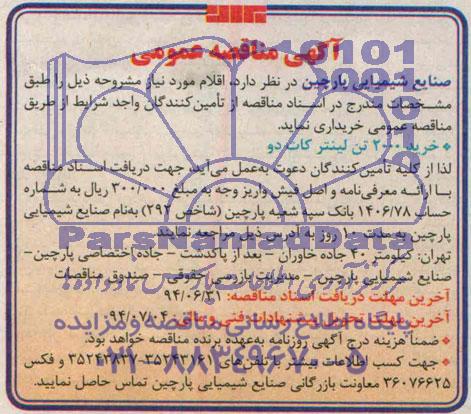 آگهی مناقصه عمومی
صنایع شیمیایی پارچین در نظر دارد، اقلام مورد نیاز مشروحه ذیل را طبق
مشخصات مندرج در اسناد مناقصه از تأمین‌کنندگان واجد شرایط از طریق
مناقصه عمومی خریداری نماید.
خرید ۲۰۰۰ تن لینتر کات دو
لذا از کلیه تأمین‌کنندگان دعوت به‌عمل می‌آید، جهت دریافت اسناد مناقصه
با ارائه معرفی‌نامه و اصل فیش واریز وجه به مبلغ ۳۰۰/۰۰۰ ریال به شماره
حساب ۱۴۰۶/۷۸ بانک سپه شعبه پارچین (شاخص ۲۹۳) به‌نام صنایع شیمیایی
پارچین به مدت ۱۰ روز به آدرس ذیل مراجعه نمایند.
تهران: کیلومتر ۴۰ جاده خاوران - بعد از پاکدشت - جاده اختصاصی پارچین-
صنایع شیمیایی پارچین - مدیریت بازرسی حقوقی - صندوق مناقصات
آخرین مهلت دریافت اسناد مناقصه: ۹۴/۰۶/۳۱
آخرین مهلت تحویل پیشنهادات فنی و مالی: ۹۴/۰۷/۰۴
ضمناً هزینه درج آگهی روزنامه به‌عهده برنده مناقصه خواهد بود.
جهت کسب اطلاعات بیشتر با تلفن‌های ۳۵۲۴۲۱۶۱-۳۵۲۴۲۸۲ و فکس
۳۶۰۷۶۶۲۵ معاونت بازرگانی صنایع شیمیایی پارچین تماس حاصل نمایید.
ParsNamadData
پایگاه اطلاع رسانی مناقصه و مزایده
۰۲۱-۸۸۳۴۹۶۷۰-۵